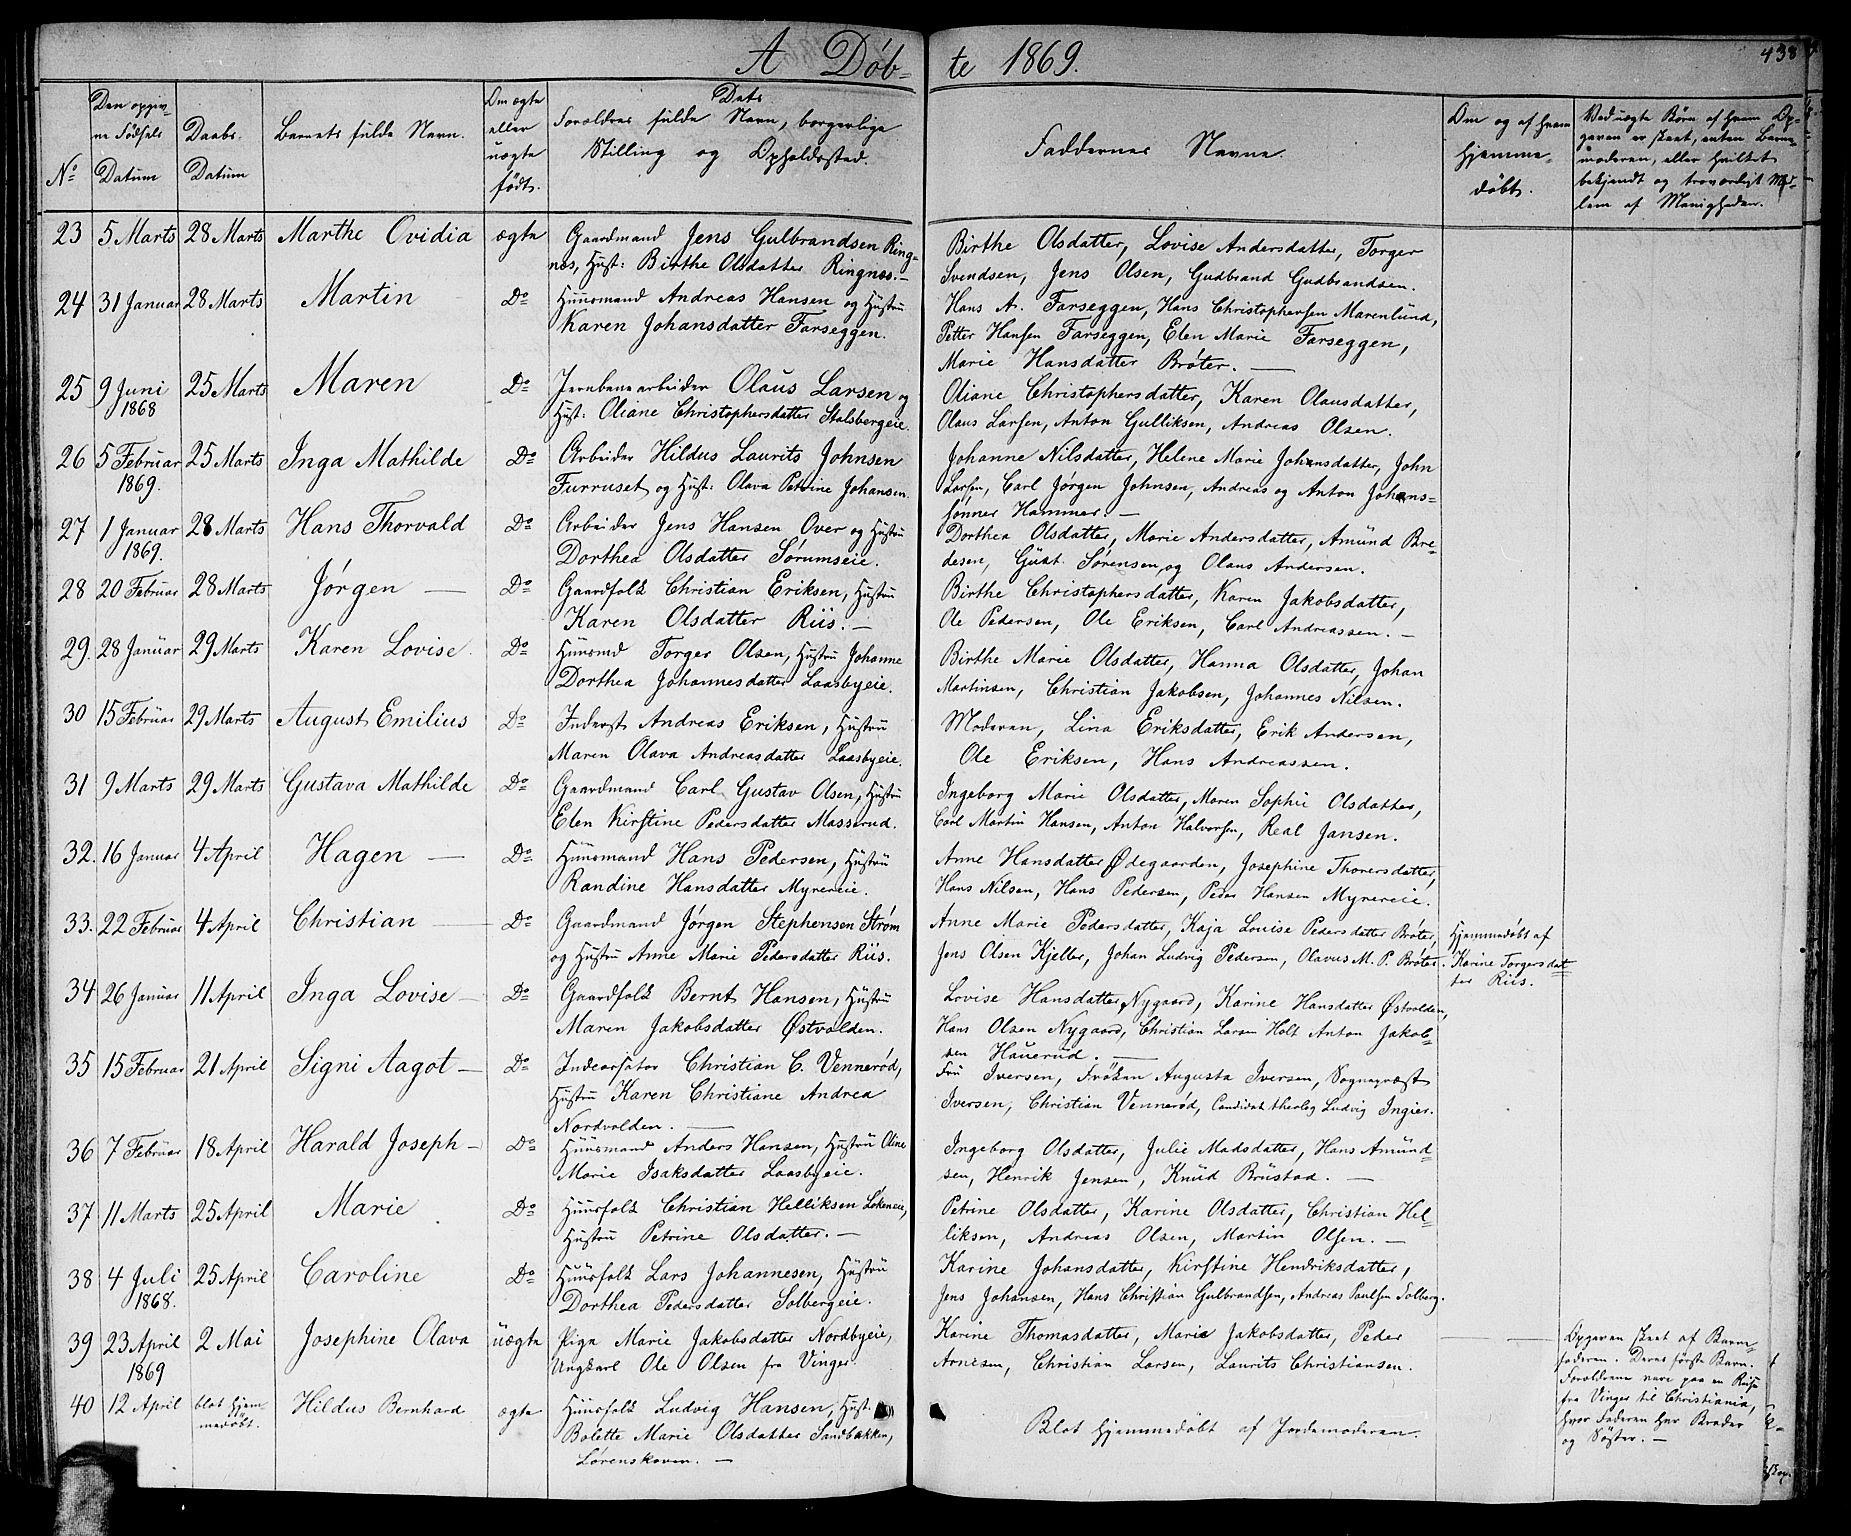 A Døb-te 1869.
438
No
Den opgivne Fødsels Datum
Daabs-Datum
Barnets fulde Navn.
Om ægte eller uægte født.
Dets Forældres fulde Navn, borgerlige Stilling og Opholdssted.
Faddernes Navne.
Om og af hvem hjemmedøbt.
Ved uægte Børn af hvem Opgaven er skeet, enten Barnemoderen, eller hvilket bekjendt og troværdigt Medlem af Menigheden.
23 5 Marts 28 Marts Marthe Ovidia ægte Gaardmand Jens Gulbrandsen Ring-
næs, Hust: Birthe Olsdatter Ringnæs.
Birthe Olsdatter, Lovise Andersdatter, Torger
Svendsen, Jens Olsen, Gudbrand Gudbrandsen.
24 31 Januar 28 Marts Martin Do Huusmand Andreas Hansen og Hustru
Karen Johansdatter Farseggen.
Hans A. Farseggen, Hans Christophersen Marenlund,
Petter Hansen Farseggen, Elen Marie Farseggen,
Marie Hansdatter Brøter.
25 9 Juni 1868 25 Marts Maren Do Jernbanearbeider Olaus Larsen og
Hust: Oliane Christophersdatter Stalsbergeie.
Oliane Christophersdatter, Karen Olausdatter,
Olaus Larsen, Anton Gulliksen, Andreas Olsen.
26 5 Februar 1869. 25 Marts Inga Mathilde Do Arbeider Hildus Laurits Johnsen
Furruset og Hust: Olava Petrine Johansen.
Johanne Nilsdatter, Helene Marie Johansdatter, John
Larsen, Carl Jørgen Johnsen, Andreas og Anton Johans-
sønner Hammer.
27 1 Januar 1869. 28 Marts Hans Thorvald Do Arbeider Jens Hansen Over og Hustru
Dorthea Olsdatter Sørumseie.
Dorthea Olsdatter, Marie Andersdatter, Amund Bre-
desen, Gust. Sørensen, og Olaus Andersen.
28 20 Februar 28 Marts Jørgen Do Gaardfolk Christian Eriksen, Hustru
Karen Olsdatter Riis.
Birthe Christophersdatter, Karen Jakobsdatter,
Ole Pedersen, Ole Eriksen, Carl Andreassen.
29. 28 Januar 29 Marts Karen Lovise. Do Huusmd Torger Olsen, Hustru Johanne
Dorthea Johannesdatter Laasbyeie.
Birthe Marie Olsdatter, Hanna Olsdatter, Johan
Martinsen, Christian Jakobsen, Johannes Nilsen.
30 15 Februar 29 Marts August Emilius Do Inderst Andreas Eriksen, Hustru
Maren Olava Andreasdatter Laasbyeie.
Moderen, Lina Eriksdatter, Erik Andersen,
Ole Eriksen, Hans Andreassen.
31 9 Marts 29 Marts Gustava Mathilde Do Gaardmand Carl Gustav Olsen, Hustru
Elen Kirstine Pedersdatter Masserud.
Ingeborg Marie Olsdatter, Maren Sophie Olsdatter,
Carl Martin Hansen, Anton Halvorsen, Real Jansen.
32. 16 Januar 4 April Hagen Do Huusmand Hans Pedersen, Hustru
Randine Hansdatter Myrereie.
Anne Hansdatter Ødegaarden, Josephine Thorersdatter,
Hans Nilsen, Hans Pedersen, Peder Hansen Myrereie.
33. 22 Februar 4 April Christian Do Gaardmand Jørgen Stephensen Strøm
og Hustru Anne Marie Pedersdatter Riis.
Anne Marie Pedersdatter, Kaja Louise Pedersdatter Brøter,
Jens Olsen Kjeller, Johan Ludvig Pedersen, Olavus M. P. Brøter.
Hjemmedøbt af
Karine Torgersdat-
ter Riis.
34 26 Januar 11 April Inga Lovise Do Gaardfolk Bernt Hansen, Hustru
Maren Jakobsdatter Østvolden.
Lovise Hansdatter Nygaard, Karine Hansdatter Østvolden,
Hans Olsen Nygaard, Christian Larsen Holt Anton Jakob-
sen Hauerud.
35 15 Februar 21 April Signi Aagot Do Indeorsator Christian C. Vennerød,
Hustru Karen Christiane Andrea
Nordvolden.
Fru Iversen, Frøken Augusta Iversen, Sognepræst
Iversen, Christian Vennerød, Candidat theolog Ludvig Ingier.
36 7 Februar 18 April Harald Joseph Do Huusmand Anders Hansen, Hustru Oline
Marie Isaksdatter Laasbyeie.
Ingeborg Olsdatter, Julie Madsdatter, Hans Amund-
sen, Henrik Jensen, Knud Brustad.
37 11 Marts 25 April Marie Do Huusfolk Christian Helliksen Løkeneie,
Hustru Petrine Olsdatter.
Petrine Olsdatter, Karine Olsdatter, Christian Hel-
liksen, Andreas Olsen, Martin Olsen.
38 4 Juli 1868. 25 April Caroline Do Huusfolk Lars Johannesen, Hustru
Dorthea Pedersdatter Solbergeie.
Karine Johansdatter, Kirstine Hendriksdatter,
Jens Johansen, Hans Christian Gulbrandsen, Andreas Paulsen Solberg.
39 23 April 1869 2 Mai Josephine Olava uægte Pige Marie Jakobsdatter Nordbyeie,
Ungkarl Ole Olsen fra Vinger.
Karine Thomasdatter, Marie Jakobsdatter, Peder
Arnesen, Christian Larsen, Laurits Christiansen.
Opgaven skeet af Barne-
faderen. Deres første Barn.
Forældrene vare paa en Reise
fra Vinger til Christiania,
hvor Faderen har Broder
og Søster.
40 12 April blot hjemmedøbt. Hildus Bernhard ægte Huusfolk Ludvig Hansen, Hust.
Bolette Marie Olsdatter Sandbækken,
Lørenskoven.
Blot hjemmedøbt af Jordemoderen.